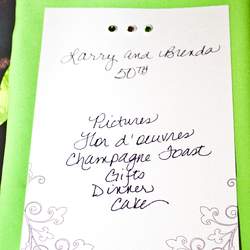 Larry and Brenda
50TH
Pictures
Hor d'oeuvres
Champagne Toast
Gifts
Dinner
Cake